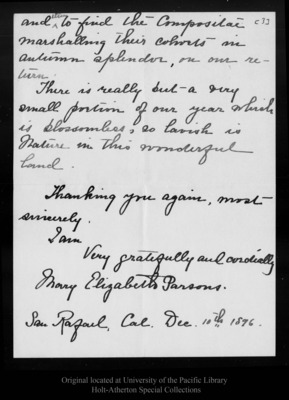 and to find the Compositae
marshalling their cohorts in
autumn splendor, on our re-
turn.
There is really but a very
small portion of our year which
is blossomless; so lavish is
Nature in this wonderful
land.
Thanking you again, most
sincerely.
I am
Very gratefully and cordially
Mary Elizabeth Parsons.
San Rafael, Cal. Dec. 10th 1896.
Original located at University of the Pacific Library
Holt-Atherton Special Collections